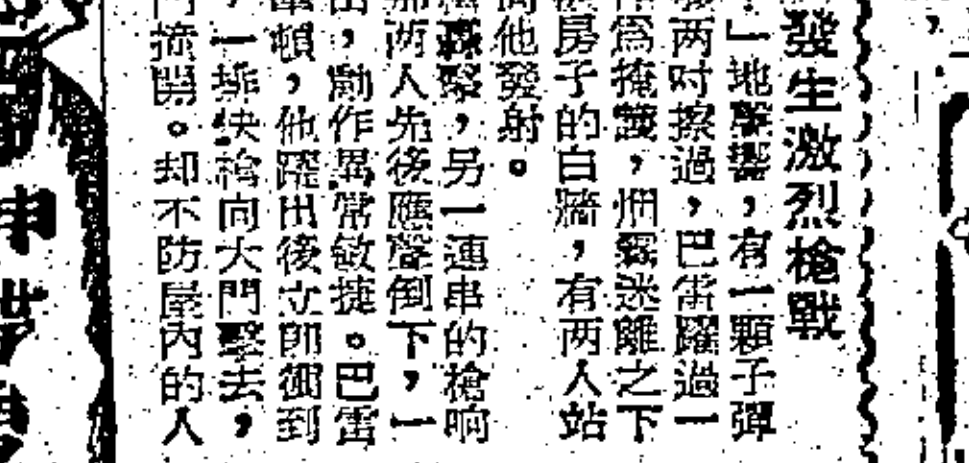 發生激烈槍戰
」地擊響，有一顆子彈
两吋擦過，巴雷躍過一
為掩護，烟霧迷離之下
房子的白牆，有两人站
他發射。
聲，另一連串的槍响
两人先後應聲倒下，一
，動作異常敏捷。巴雷
頓，他躍出後立即衝到
，一排快槍向大門擊去，
撞開。却不防屋内的人